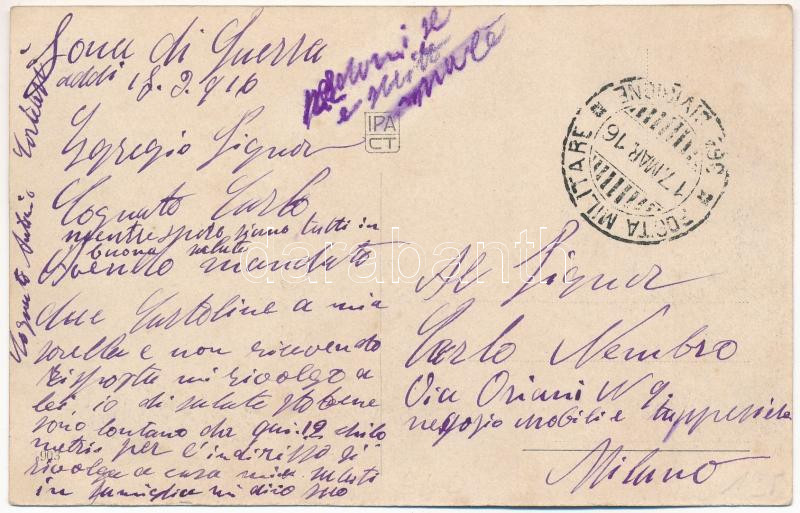 Zona di Guerra
addi 18.3.916
Egregio Signor
Cognato Carlo
mentre spero siano tutti in
buona salute
Avendo mandato
due Cartoline a mia
sorella e non ricevendo
risposta mi rivolgo a
lei, io di salute sto bene
sono lontano da qui 12 chilo
metri per l'indirizzo si
rivolga a casa mia saluti
in famiglia mi dico suo
Cognato
e
IPA
CT
POSTA MILITARE
17.MAR.16
DIVISIONE
Al Signor
Carlo Nembro
Via Oriani N 9
negozio mobili e
Milano
903
darabanth